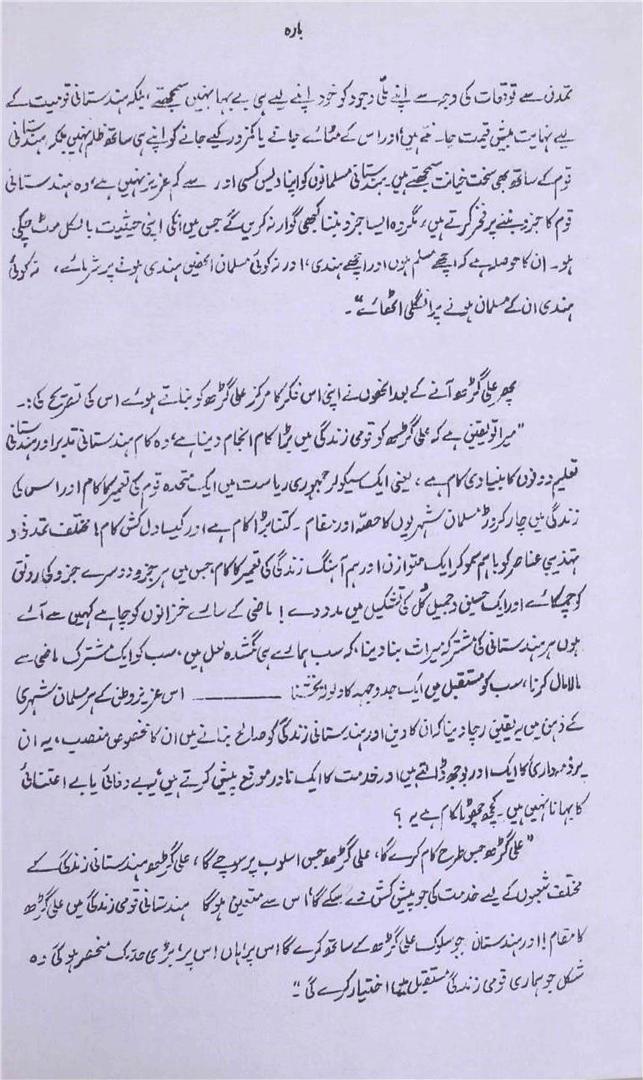 بارہ
تمدن سے توقعات کی وجہ سے اپنے ملی وجود کو خود اپنے لیے ہی بے بہا نہیں سمجھتے، بلکہ ہندستانی قومیت کے
لیے نہایت بیش قیمت جانتے ہیں، اور اس کے مٹائے جانے یا کمزور کیے جانے کو اپنے ہی ساتھ ظلم نہیں بلکہ ہندستانی
قوم کے ساتھ بھی سخت خیانت سمجھتے ہیں۔ ہندستانی مسلمانوں کو اپنا دیس کسی اور سے کم عزیز نہیں ہے، وہ ہندستانی
قوم کا جزو بننے پر فخر کرتے ہیں، مگر وہ ایسا جزو بننا کبھی گوارا نہ کریں گے جس میں انکی اپنی حیثیت بالکل مٹ چکی
ہو۔ ان کا حوصلہ ہے کہ اچھے مسلم ہوں اور اچھے ہندی، اور نہ کوئی مسلمان انھیں ہندی ہونے پر شرمائے، نہ کوئی
ہندی ان کے مسلمان ہونے پر انگلی اٹھائے"۔
پھر علی گڑھ آنے کے بعد انھوں نے اپنی اس فکر کا مرکز علی گڑھ کو بناتے ہوئے اس کی تصریح کی:۔
"میرا تو یقین ہے کہ علی گڑھ کو قومی زندگی میں بڑا کام انجام دینا ہے، وہ کام ہندستانی تدبر اور ہندستانی
تعلیم دونوں کا بنیادی کام ہے، یعنی ایک سیکولر جمہوری ریاست میں ایک متحدہ قوم کی تعمیر کا کام اور اس کی
زندگی میں چار کروڑ مسلمان شہریوں کا حصہ اور مقام۔ کتنا بڑا کام ہے اور کیسا دل کش کام! مختلف تمدنوں و
تہذیبی عناصر کو باہم سمو کر ایک متوازن اور ہم آہنگ زندگی کی تعمیر کا کام، جس میں ہر جزو دوسرے جزو کی رونق
کو چمکائے اور ایک حسین و جمیل کُل کی تشکیل میں مدد دے! ماضی کے سارے خزانوں کو چاہے کہیں سے آئے
ہوں ہر ہندستانی کی مشترکہ میراث بنا دینا، کہ سب ہمارے ہی گمشدہ لعل ہیں، سب کو ایک مشترک ماضی سے
مالا مال کرنا، سب کو مستقبل میں ایک جدوجہد کا ولولہ بخشنا ـــــــــ اس عزیز وطن کے ہر مسلمان شہری
کے ذہن میں یہ یقین رچا دینا کہ ان کا دین اور ہندستانی زندگی کو صالح بنانے میں ان کا مخصوص منصب، یہ ان
پر ذمہ داری کا ایک اور بوجھ ڈالتے ہیں اور خدمت کا ایک نادر موقع پیش کرتے ہیں، یہ بے وفائی یا بے اعتنائی
کا بہانا نہیں ہیں۔ کچھ چھوٹا کام ہے یہ؟
"علی گڑھ جس طرح کام کرے گا، علی گڑھ جس اسلوب پر سوچے گا، علی گڑھ ہندستانی زندگی کے
مختلف شعبوں کے لیے خدمت کی جو پیش کش دے سکے گا، اس سے متعین ہوگا ہندستانی قومی زندگی میں علی گڑھ
کا مقام! اور ہندستان جو سلوک علی گڑھ کے ساتھ کرے گا اس پر، ہاں اس پر، بڑی حد تک منحصر ہوگی وہ
شکل جو ہماری قومی زندگی مستقبل میں اختیار کرے گی"۔